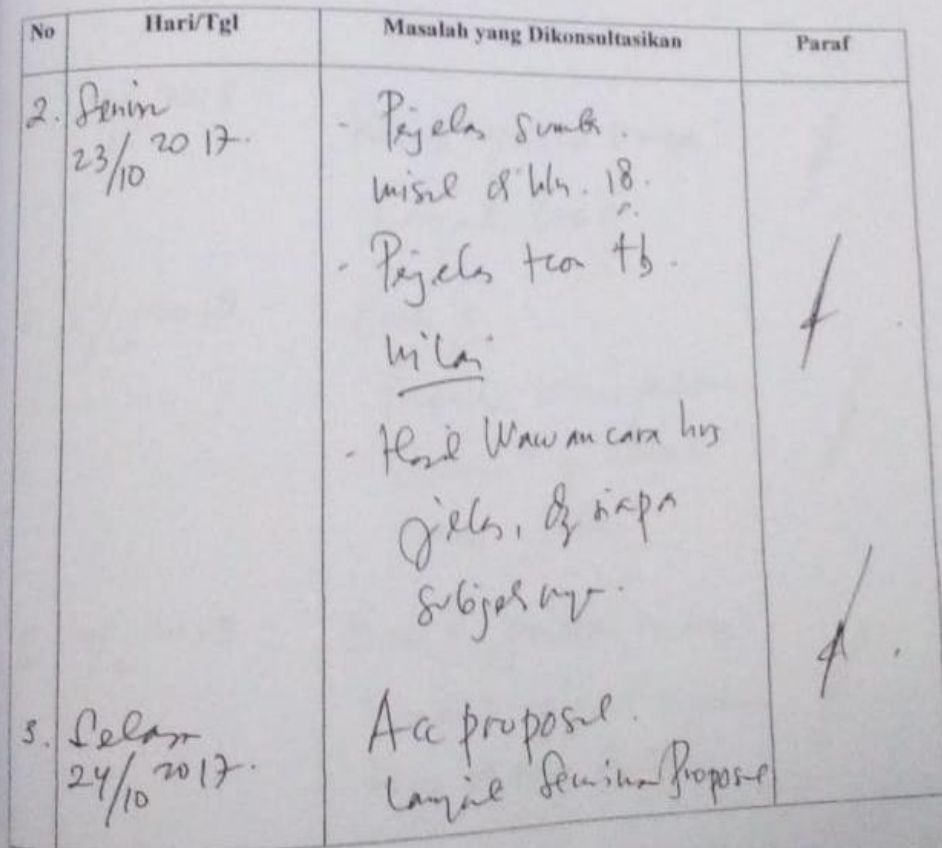 No Hari/Tgl Masalah yang Dikonsultasikan Paraf
2. Senin - Pejelas sumbr.
23/10 2017. misal di hlm. 18.
- Pejelas teori ttg.
nilai
- Hasil Wawancara hrs
jelas, dg siapa
subjeknya.
3. Selasa Acc proposal.
24/10 2017. Lanjut Seminar Proposal